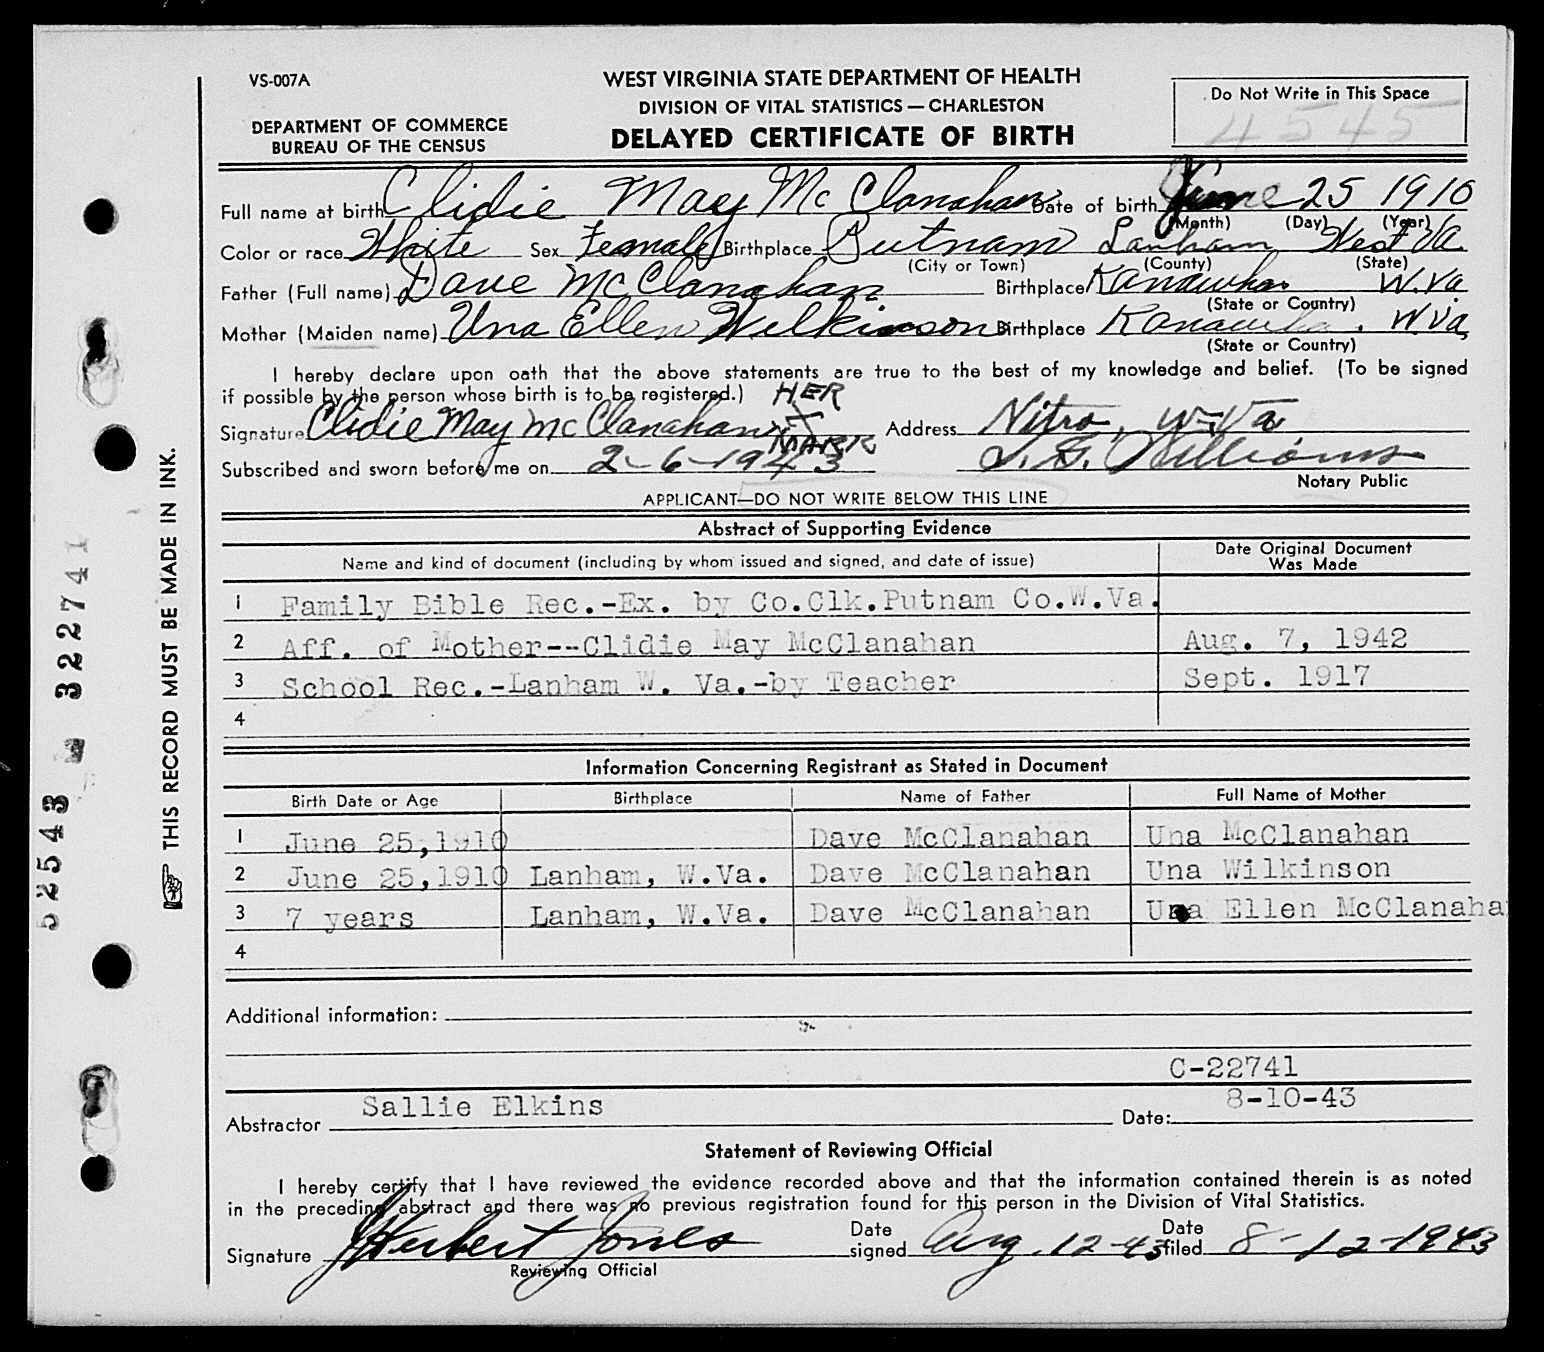 VS-007A
WEST VIRGINIA STATE DEPARTMENT OF HEALTH
DIVISION OF VITAL STATISTICS — CHARLESTON
DEPARTMENT OF COMMERCE
BUREAU OF THE CENSUS
DELAYED CERTIFICATE OF BIRTH
Do Not Write in This Space
4545
Full name at birth Clidie May McClanahan Date of birth June 25 1910
(Month) (Day) (Year)
Color or race White Sex Female Birthplace Putnam Lanham West Va.
(City or Town) (County) (State)
Father (Full name) Dave McClanahan Birthplace Kanawha W.Va
(State or Country)
Mother (Maiden name) Una Ellen Wilkinson Birthplace Kanawha. W.Va
(State or Country)
I hereby declare upon oath that the above statements are true to the best of my knowledge and belief. (To be signed
if possible by the person whose birth is to be registered.) HER
Signature Clidie May McClanahan X Address Nitro, W-Va
MARK
Subscribed and sworn before me on 2-6-1943 Williams
Notary Public
APPLICANT—DO NOT WRITE BELOW THIS LINE
Abstract of Supporting Evidence
Name and kind of document (including by whom issued and signed, and date of issue) Date Original Document
Was Made
1 Family Bible Rec.-Ex. by Co.Clk.Putnam Co.W.Va.
2 Aff. of Mother--Clidie May McClanahan Aug. 7, 1942
3 School Rec.-Lanham W. Va.-by Teacher Sept. 1917
4
Information Concerning Registrant as Stated in Document
Birth Date or Age Birthplace Name of Father Full Name of Mother
1 June 25,1910 Dave McClanahan Una McClanahan
2 June 25,1910 Lanham, W.Va. Dave McClanahan Una Wilkinson
3 7 years Lanham, W.Va. Dave McClanahan Una Ellen McClanaha
4
Additional information:
C-22741
Abstractor Sallie Elkins Date: 8-10-43
Statement of Reviewing Official
I hereby certify that I have reviewed the evidence recorded above and that the information contained therein is as noted
in the preceding abstract and there was no previous registration found for this person in the Division of Vital Statistics.
Signature Herbert Jones Date signed Aug. 12-43 Date filed 8-12-1943
Reviewing Official
THIS RECORD MUST BE MADE IN INK.
52543 322741